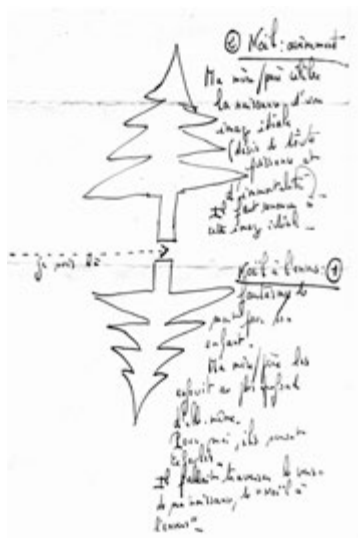 ② Noël : avènement
Ma mère/père célèbre
la naissance d'une
image idéale
(désir de toute
puissance et
d'immortalité)
Il faut renoncer à
cette image idéal -
je suis là
Noël à l'envers : ①
fantasme de
mort sur son
enfant.
Ma mère/père les
enfouit au plus profond
d'elle-même.
Pour moi, ils seront
Il fallait traverser le sens
de ma naissance, le "Noël à
l'envers".